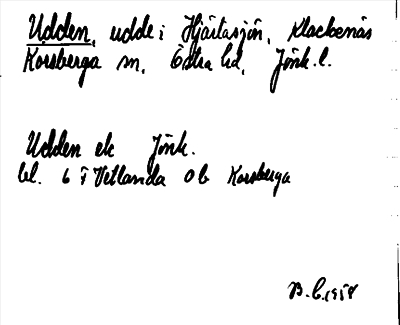 Udden, udde i Hjärtasjön, Klackenäs
Korsberga sn, Östra hd, Jönk. l.
Udden ek Jönk.
bl. 6 i Vetlanda Ob Korsberga
B. C. 1958